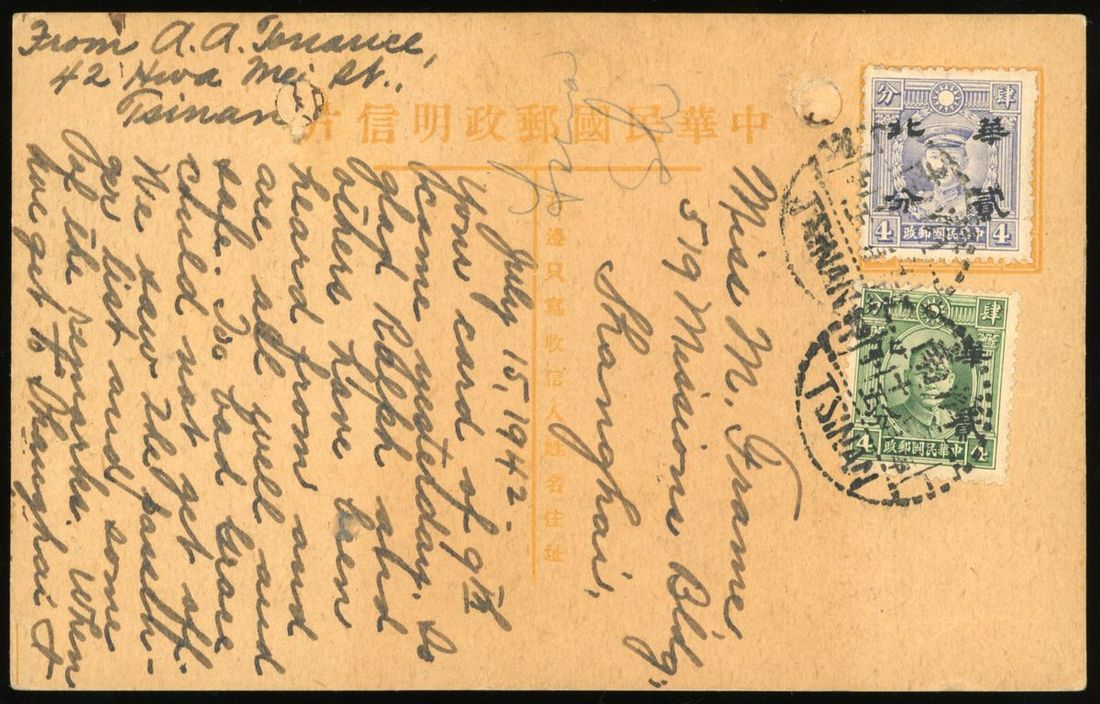 From A. A. Torrance,
42 Hwa Mei St.,
Tsinan
中華民國郵政明信片
此邊只寫收信人姓名住址
July 15, 1942-
Your card of 9th
came yesterday. So
glad Ralph and
others have been
heard from and
are all well and
safe. Too bad Grace
child not get off.
We saw the passen-
ger list and some
of the remarks. When
we get to Shanghai &
Miss M. Frame,
519 Missions Bldg,
Shanghai,
分 肆
華北
貳分
4 中華民國郵政 4
TSINAN
分 肆
華
貳
4 中華民國郵政
TSINAN